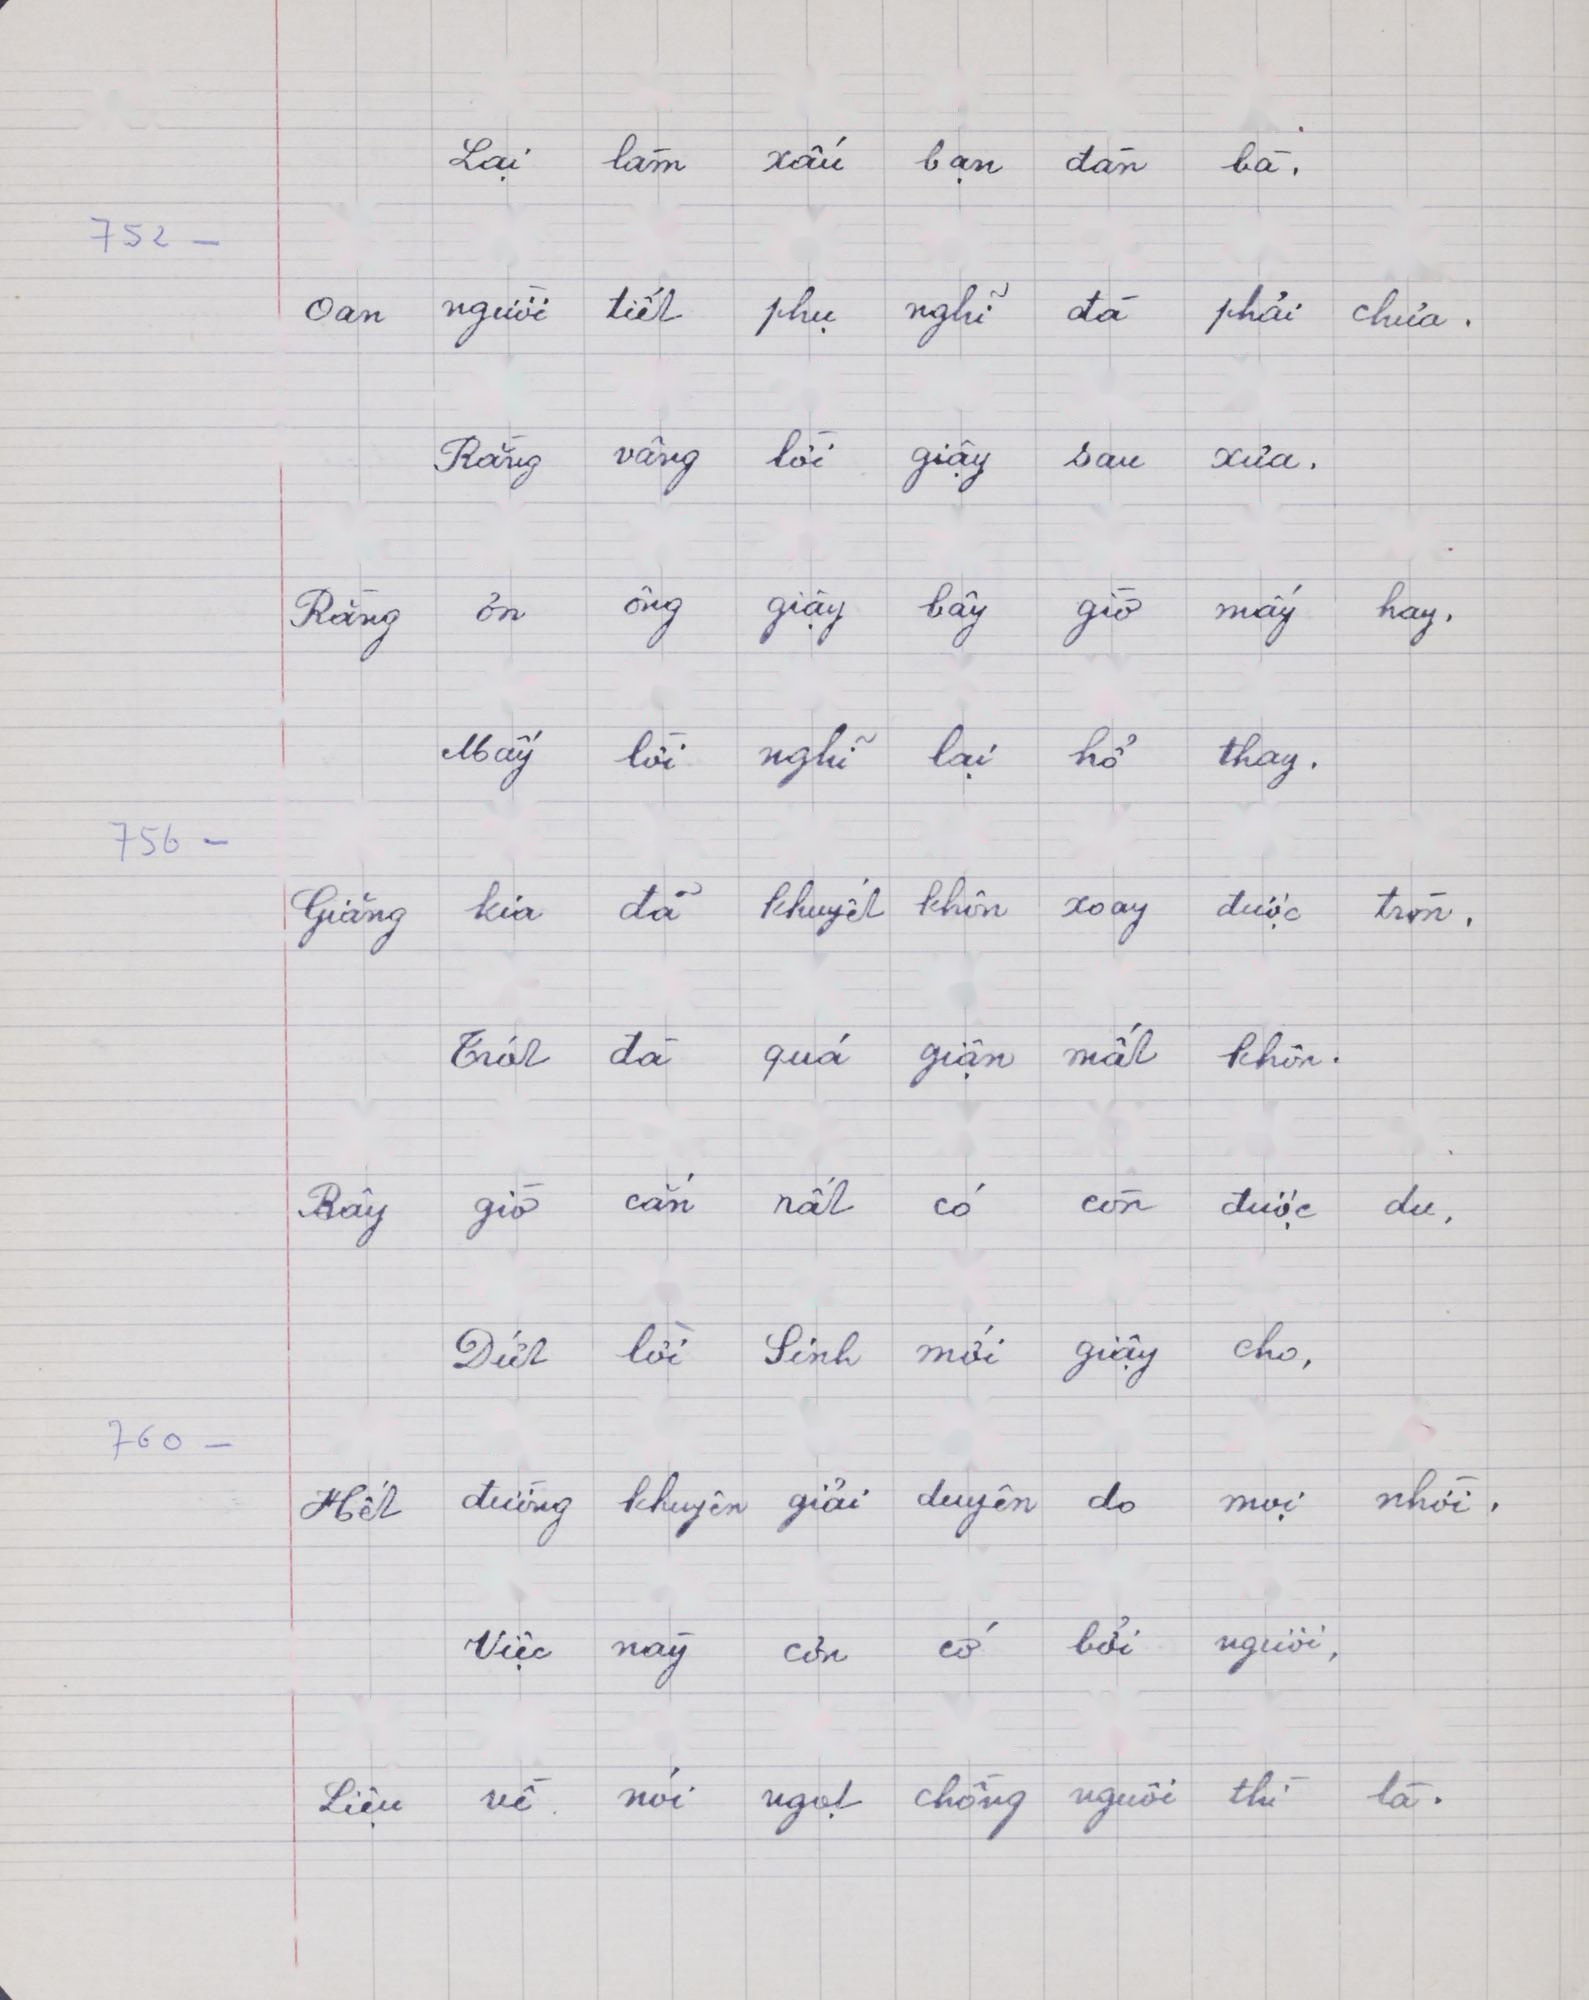 Lại làm xấu bạn đàn bà.
752 –
Oan người tiết phụ nghĩ đà phải chưa.
Rằng vâng lời giậy sau xưa.
Rằng ơn ông giậy bây giờ mấy hay.
Mấy lời nghĩ lại hổ thay.
756 –
Giăng kia đã khuyết khôn xoay được tròn.
Trót đà quá giận mất khôn.
Bây giờ cắn rất có còn được du.
Dứt lời Sinh mới giậy cho,
760 –
Hết đường khuyên giải duyên do mọi nhời.
Việc này cơn cớ bởi người,
Liệu về nói ngọt chồng người thì là.